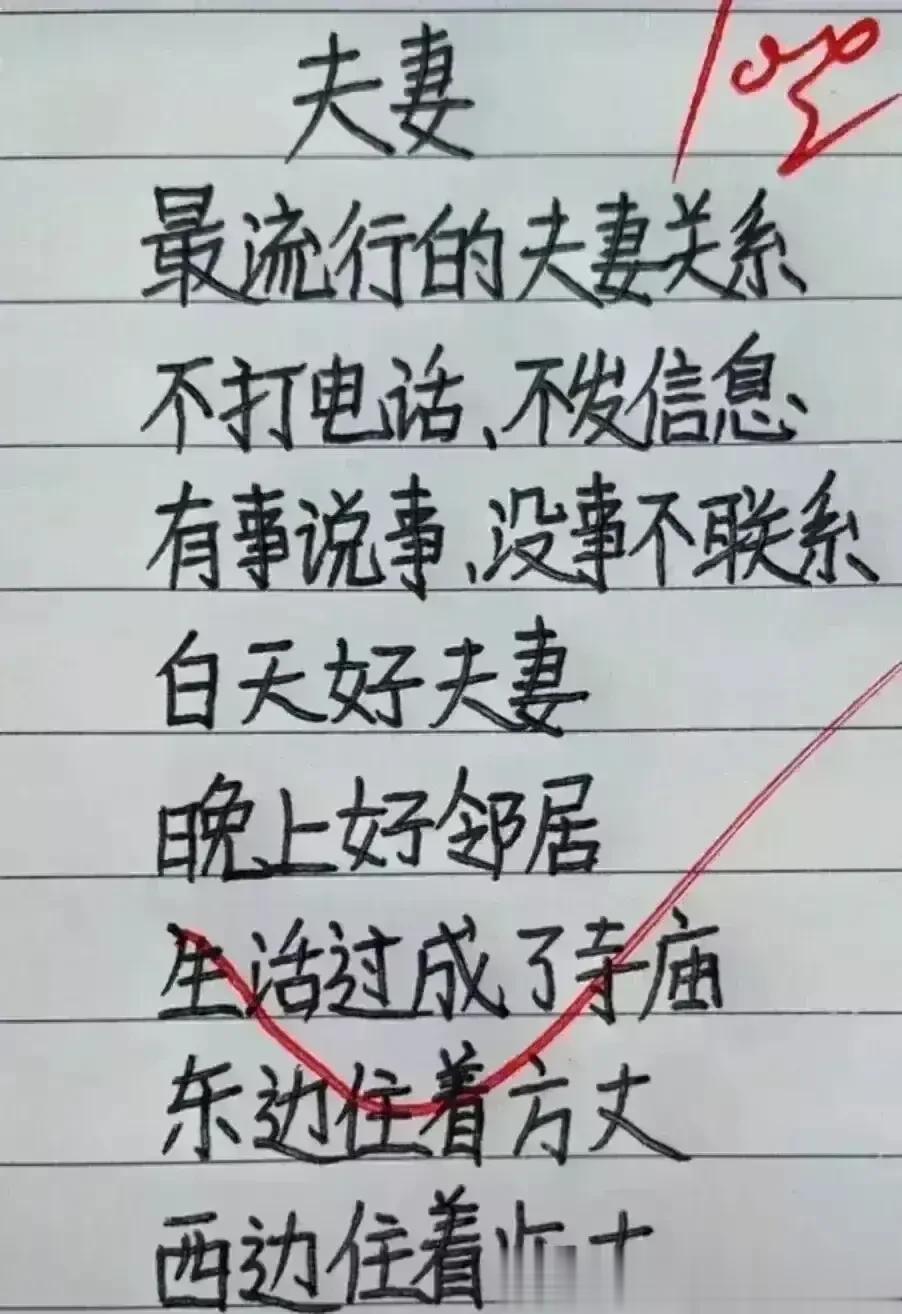 100
夫妻
最流行的夫妻关系
不打电话、不发信息、
有事说事、没事不联系
白天好夫妻
晚上好邻居
生活过成了寺庙
东边住着方丈
西边住着